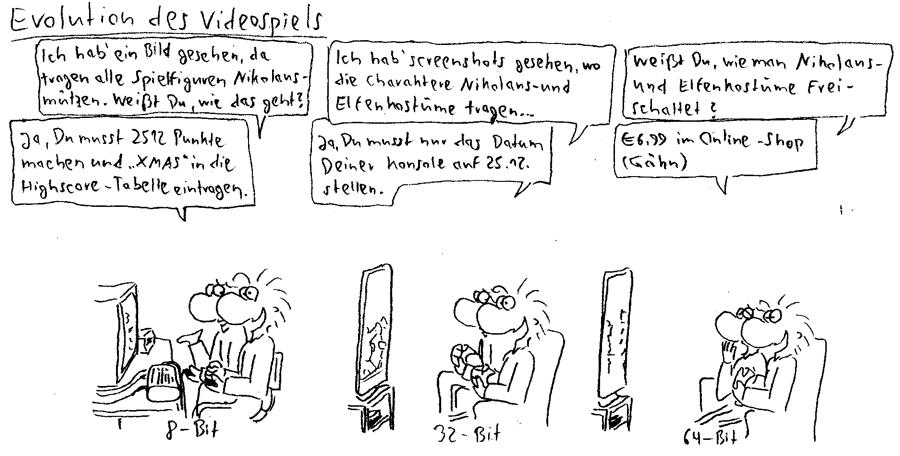 Evolution des Videospiels
Ich hab' ein Bild gesehen, da
tragen alle Spielfiguren Nikolaus-
mützen. Weißt Du, wie das geht?
Ja, Du musst 2512 Punkte
machen und „XMAS" in die
Highscore-Tabelle eintragen.
8-Bit
Ich hab' screenshots gesehen, wo
die Charaktere Nikolaus- und
Elfenkostüme tragen...
Ja, Du musst nur das Datum
Deiner Konsole auf 25.12.
stellen.
32-Bit
Weißt Du, wie man Nikolaus-
und Elfenkostüme Frei-
schaltet?
€6,99 im Online-Shop
(Gähn)
64-Bit